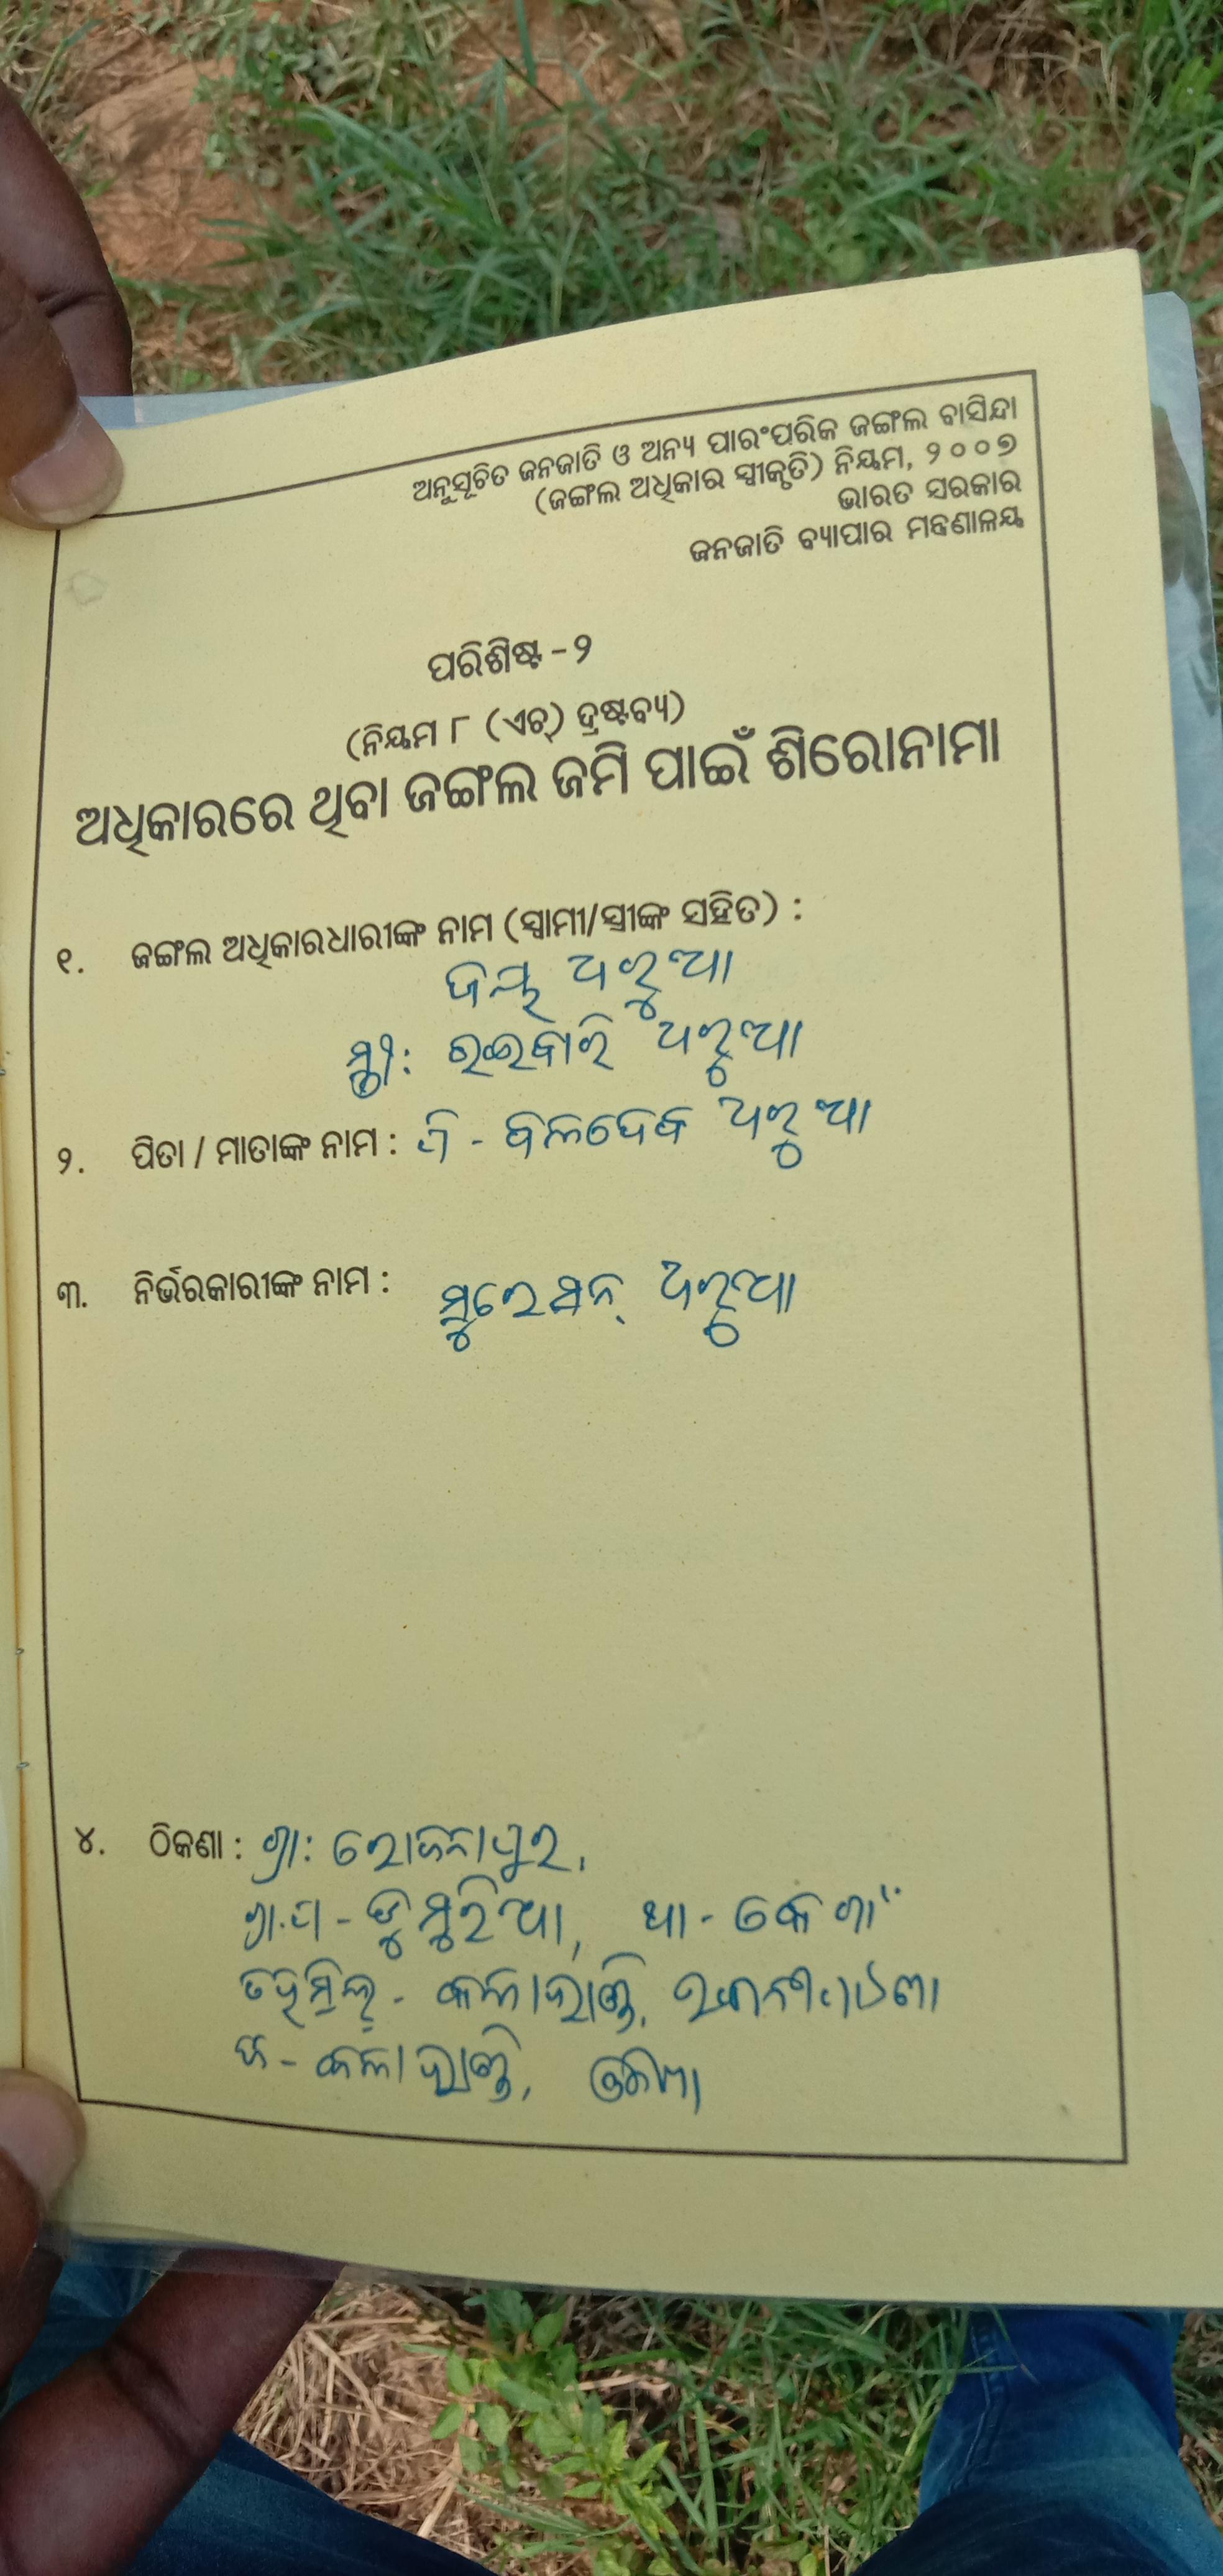 ଅନୁସୂଚିତ ଜନଜାତି ଓ ଅନ୍ୟ ପାରଂପରିକ ଜଙ୍ଗଲ ବାସିନ୍ଦା
(ଜଙ୍ଗଲ ଅଧିକାର ସ୍ୱୀକୃତି) ନିୟମ, ୨୦୦୭
ଭାରତ ସରକାର
ଜନଜାତି ବ୍ୟାପାର ମନ୍ତ୍ରଣାଳୟ
ପରିଶିଷ୍ଟ - ୨
(ନିୟମ ୮ (ଏଚ୍) ଦ୍ରଷ୍ଟବ୍ୟ)
ଅଧିକାରରେ ଥିବା ଜଙ୍ଗଲ ଜମି ପାଇଁ ଶିରୋନାମା
୧. ଜଙ୍ଗଲ ଅଧିକାରଧାରୀଙ୍କ ନାମ (ସ୍ୱାମୀ/ସ୍ତ୍ରୀଙ୍କ ସହିତ) :
ଜୟ
ସ୍ତ୍ରୀ: ରଇବାରି
୨. ପିତା / ମାତାଙ୍କ ନାମ : ପି -
୩. ନିର୍ଭରକାରୀଙ୍କ ନାମ :
୪. ଠିକଣା : ଗ୍ରା:
ଗ୍ରା.ପ - ଡୁମୁରିଆ, ଥା -
ତହସିଲ୍ - କଳାହାଣ୍ଡି, ଭବାନୀପାଟଣା
ଜି - କଳାହାଣ୍ଡି, ଓଡିଶା